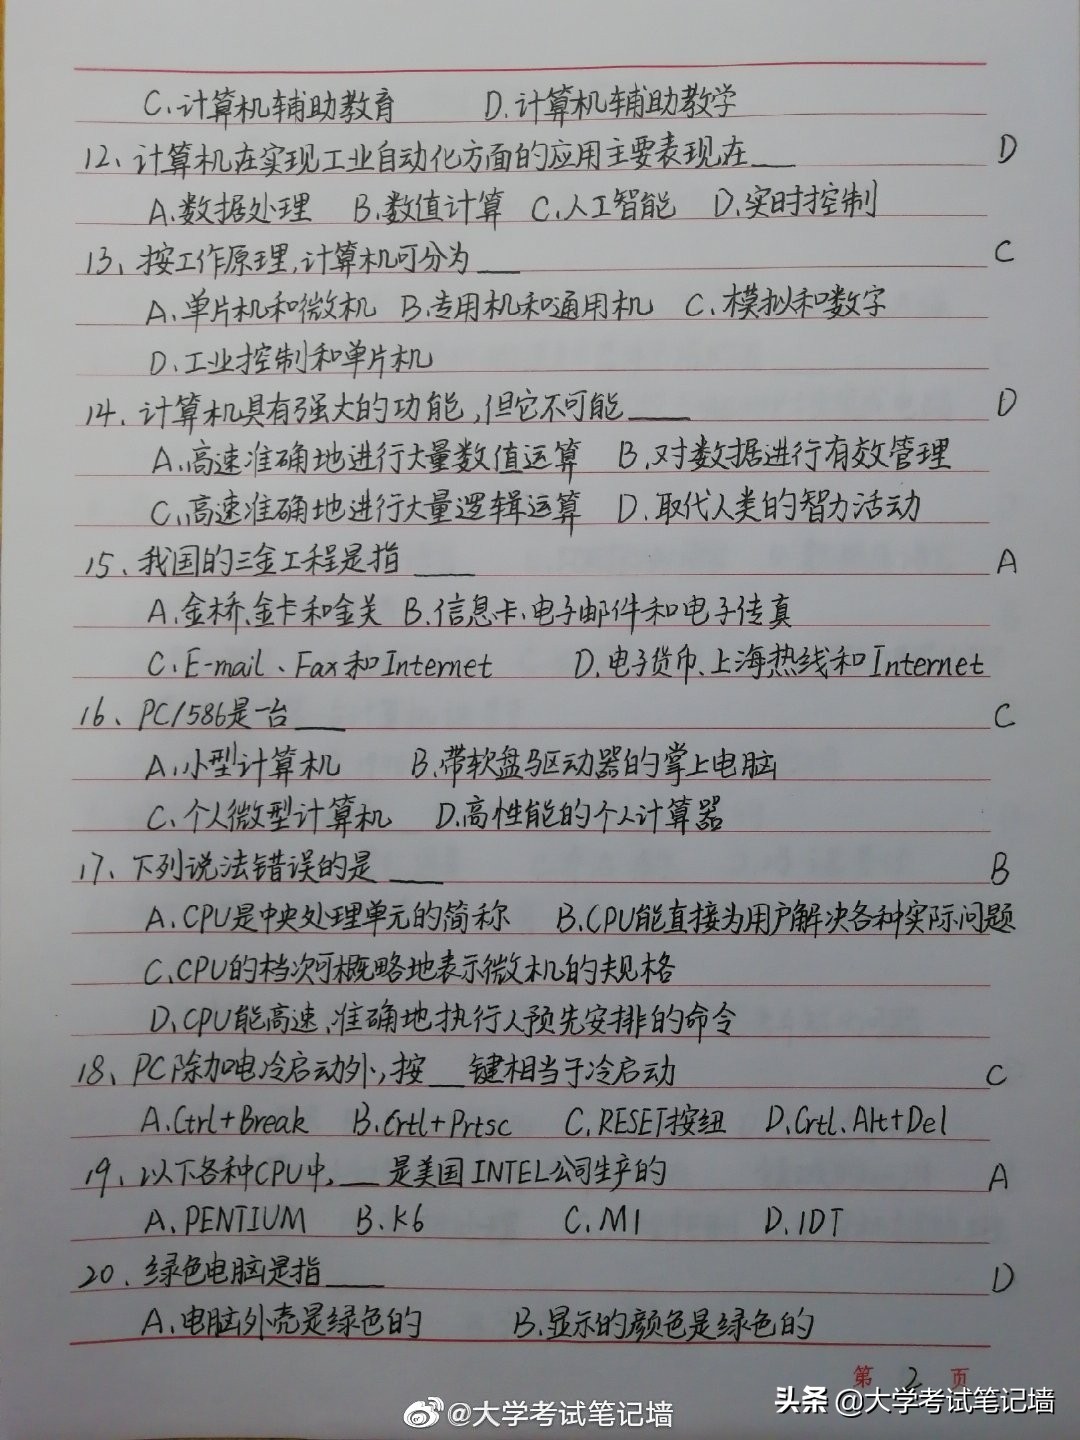 C、计算机辅助教育 D、计算机辅助教学
12、计算机在实现工业自动化方面的应用主要表现在___ D
A、数据处理 B、数值计算 C、人工智能 D、实时控制
13、按工作原理,计算机可分为___ C
A、单片机和微机 B、专用机和通用机 C、模拟和数字
D、工业控制和单片机
14、计算机具有强大的功能,但它不可能____ D
A、高速准确地进行大量数值运算 B、对数据进行有效管理
C、高速准确地进行大量逻辑运算 D、取代人类的智力活动
15、我国的三金工程是指____ A
A、金桥、金卡和金关 B、信息卡、电子邮件和电子传真
C、E-mail、Fax和Internet D、电子货币、上海热线和Internet
16、PC/586是一台___ C
A、小型计算机 B、带软盘驱动器的掌上电脑
C、个人微型计算机 D、高性能的个人计算器
17、下列说法错误的是____ B
A、CPU是中央处理单元的简称 B、CPU能直接为用户解决各种实际问题
C、CPU的档次可概略地表示微机的规格
D、CPU能高速、准确地执行人预先安排的命令
18、PC除加电冷启动外,按__键相当于冷启动 C
A、Ctrl+Break B、Crtl+Prtsc C、RESET按纽 D、Crtl、Alt+Del
19、以下各种CPU中,__是美国INTEL公司生产的 A
A、PENTIUM B、K6 C、M1 D、IDT
20、绿色电脑是指____ D
A、电脑外壳是绿色的 B、显示的颜色是绿色的
第 2 页
@大学考试笔记墙
头条 @大学考试笔记墙